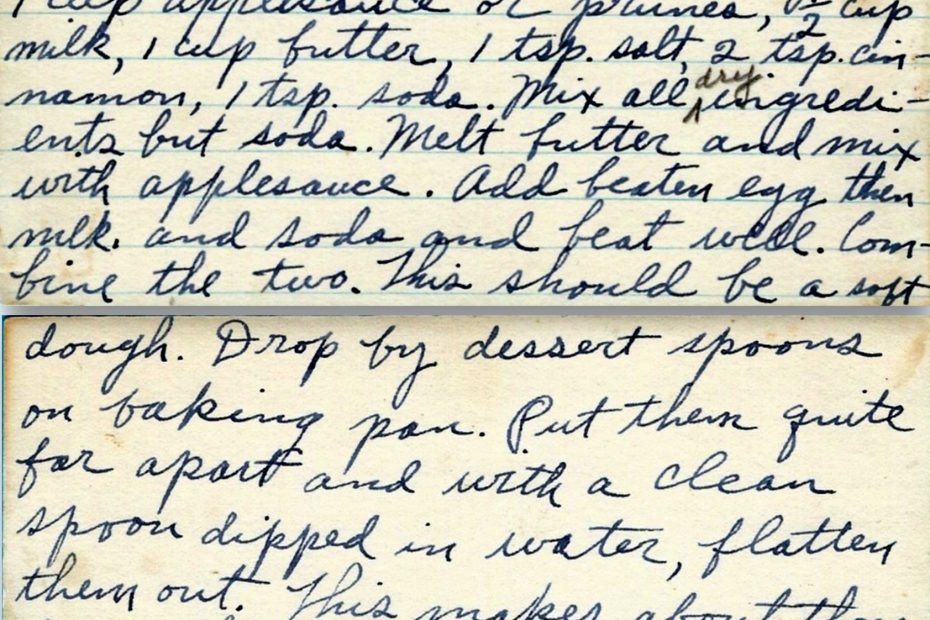 1 cup applesauce or prunes, 1/2 cup
milk, 1 cup butter, 1 tsp. salt, 2 tsp. cin-
namon, 1 tsp. soda. Mix all dry ingredi-
ents but soda. Melt butter and mix
with applesauce. Add beaten egg then
milk. and soda and beat well. Com-
bine the two. This should be a soft
dough. Drop by dessert spoons
on baking pan. Put them quite
far apart and with a clean
spoon dipped in water, flatten
them out. This makes about